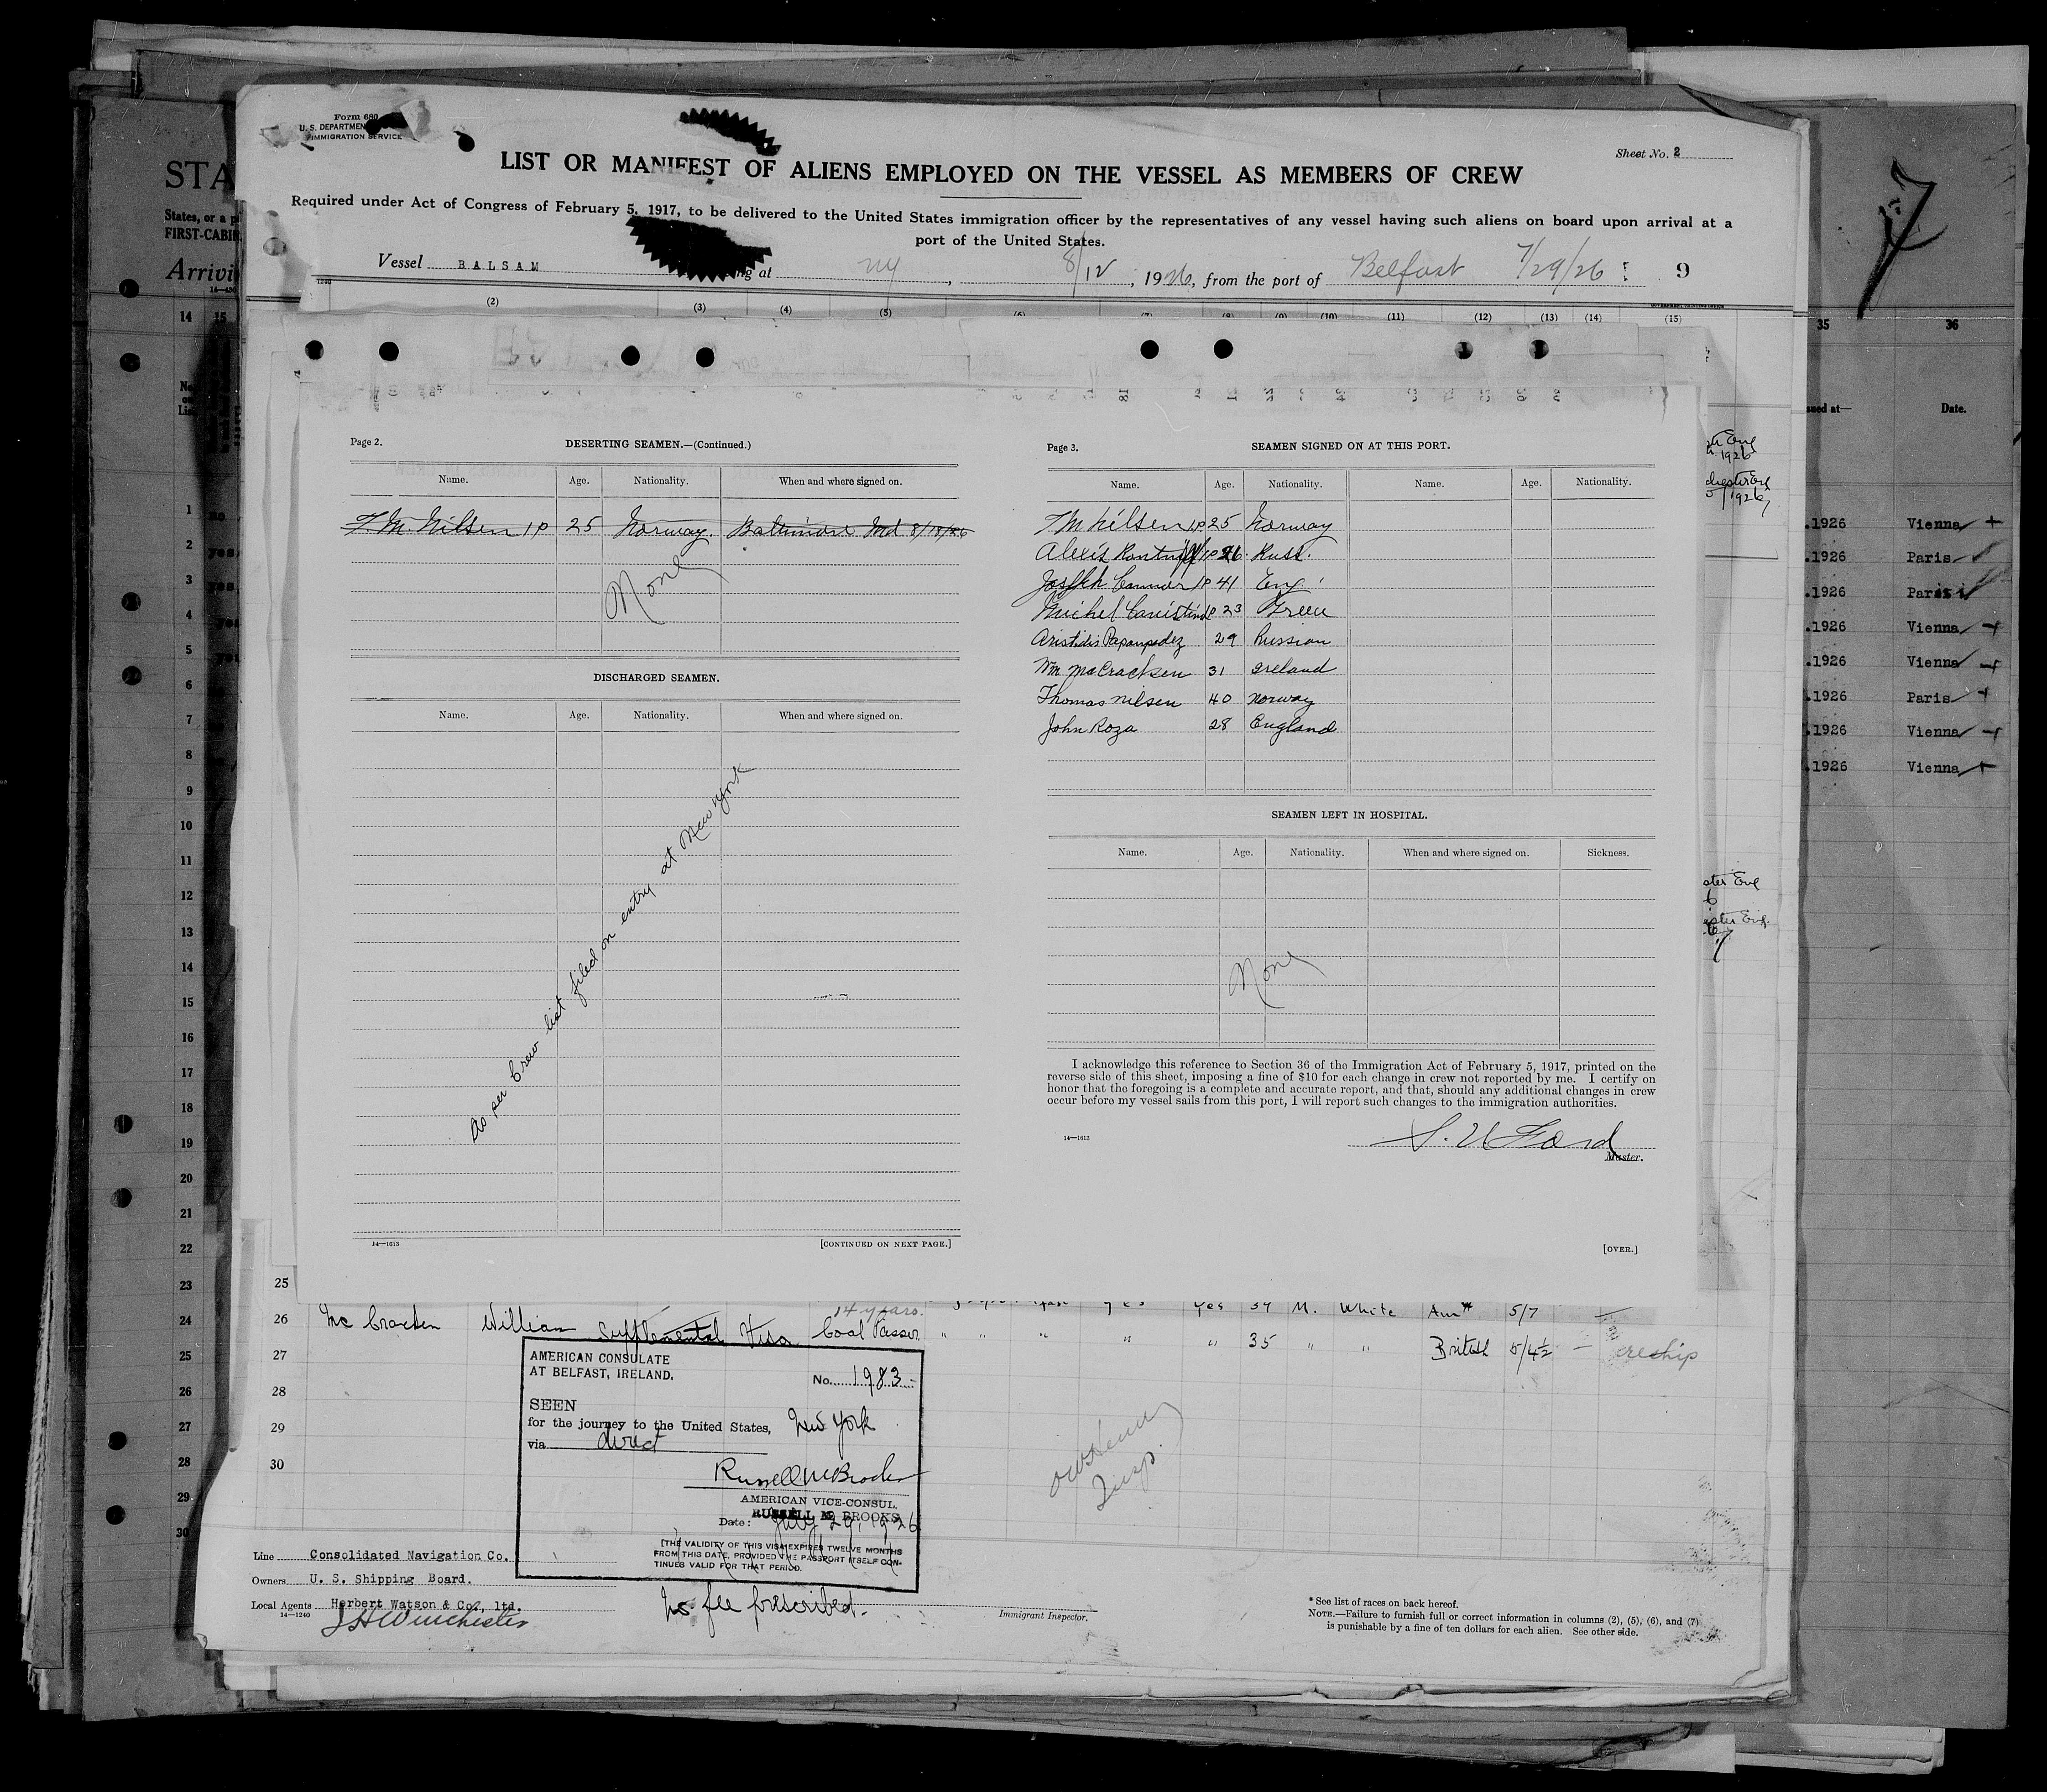 Form 680
U. S. DEPARTMENT
IMMIGRATION SERVICE
Sheet No. 2
LIST OR MANIFEST OF ALIENS EMPLOYED ON THE VESSEL AS MEMBERS OF CREW
Required under Act of Congress of February 5, 1917, to be delivered to the United States immigration officer by the representatives of any vessel having such aliens on board upon arrival at a
port of the United States.
Vessel BALSAM at NY, 8/12, 1926, from the port of Belfast 7/29/26 9
(2) (3) (4) (5) (6) (7) (8) (9) (10) (11) (12) (13) (14) (15)
STA
States, or a p
FIRST-CABIN
Arrivi
14 15
Page 2.
DESERTING SEAMEN.—(Continued.)
Name. Age. Nationality. When and where signed on.
T. M. Nilsen 1P 25 Norway. Baltimore Md 8/18/26
None
DISCHARGED SEAMEN.
Name. Age. Nationality. When and where signed on.
As per Crew list filed on entry at New York
14—1613
[CONTINUED ON NEXT PAGE.]
Page 3.
SEAMEN SIGNED ON AT THIS PORT.
Name. Age. Nationality. Name. Age. Nationality.
T M Nilsen 1P 25 Norway
Alexis 1P 26 Russ.
Joseph Connor 1P 41 Eng.
Michel 1P 23 Greece
Aristidis 29 Russian
Wm McCracken 31 Ireland
Thomas Nilsen 40 Norway
John Roza 28 England
SEAMEN LEFT IN HOSPITAL.
Name. Age. Nationality. When and where signed on. Sickness.
None
I acknowledge this reference to Section 36 of the Immigration Act of February 5, 1917, printed on the
reverse side of this sheet, imposing a fine of $10 for each change in crew not reported by me. I certify on
honor that the foregoing is a complete and accurate report, and that, should any additional changes in crew
occur before my vessel sails from this port, I will report such changes to the immigration authorities.
14—1613
Master.
[OVER.]
35 36
sued at— Date.
.1926 Vienna
.1926 Paris
.1926 Paris
.1926 Vienna
.1926 Vienna
.1926 Paris
.1926 Vienna
.1926 Vienna
25
14 years. Yes 39 M. White Am 5/7
26 Mc Cracken William Supplemental Visa Coal Passer " " " " " 35 " " British 5/4½
27
28
29
30
AMERICAN CONSULATE
AT BELFAST, IRELAND.
No. 1983
SEEN
for the journey to the United States, New York
via direct
Russell M Brooks
AMERICAN VICE-CONSUL.
RUSSELL M BROOKS
Date: July 29, 1926
[THE VALIDITY OF THIS VISA EXPIRES TWELVE MONTHS
FROM THIS DATE, PROVIDED THE PASSPORT ITSELF CON-
TINUES VALID FOR THAT PERIOD.
No fee prescribed.
Insp.
Line Consolidated Navigation Co.
Owners U. S. Shipping Board.
Local Agents Herbert Watson & Co., ltd.
14—1240
J H Winchester
Immigrant Inspector.
* See list of races on back hereof.
NOTE.—Failure to furnish full or correct information in columns (2), (5), (6), and (7)
is punishable by a fine of ten dollars for each alien. See other side.